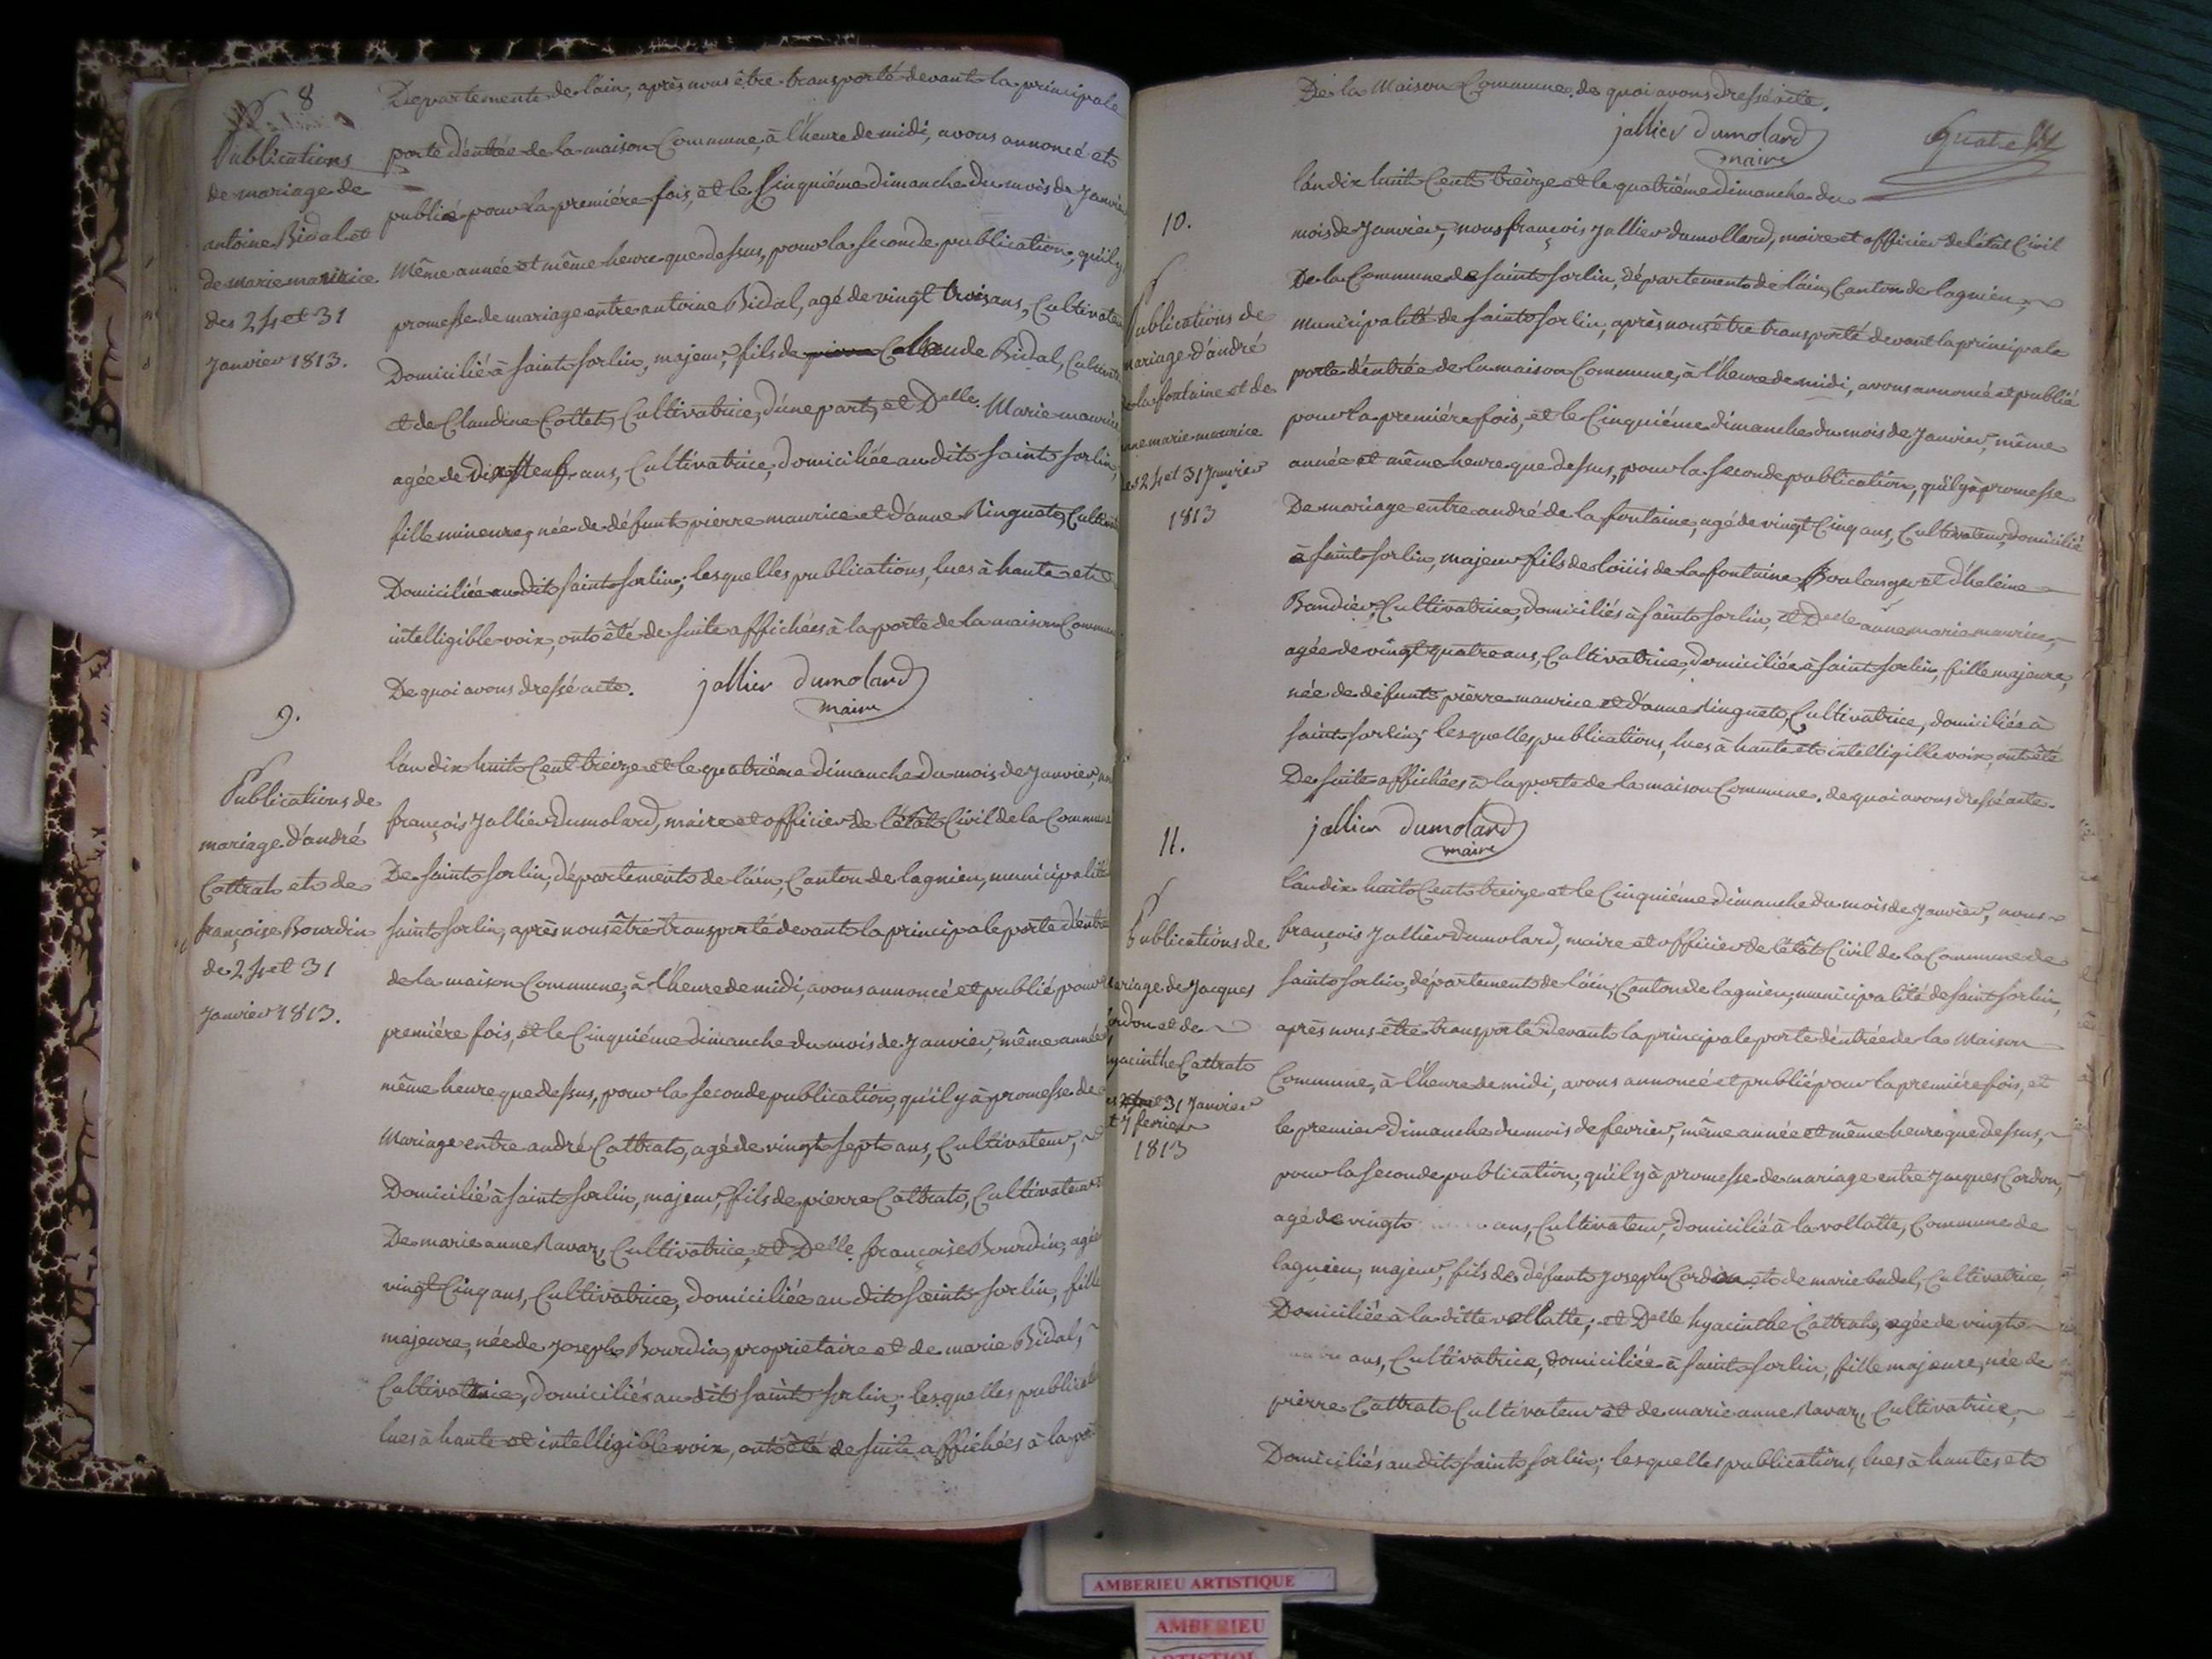 8
Publications
de mariage de
antoine Bidal et
de marie maurice
des 24 et 31
Janvier 1813.
Departement de l'ain, après nous être transporté devant la principale
porte d'entrée de la maison Commune, à l'heure de midi, avons annoncé et
publié pour la premiére fois, et le Cinquiéme dimanche du mois de Janvier
même année et même heure que dessus, pour la seconde publication, qu'il y
promesse de mariage entre antoine Bidal, agé de vingt trois ans, Cultivateur
Domicilié à saint sorlin, majeur, fils de pierre Claude Bidal, Cultivateur
et de Claudine Cottet, Cultivatrice, d'une part, et Delle. Marie maurice
agée de Dix neuf ans, Cultivatrice, domiciliée au dit saint sorlin,
fille mineure, née de défunt pierre maurice et d'anne Ringuet, Cultivatrice
Domiciliée au dit saint sorlin; lesquelles publications, lues à haute et
intelligible voix, ont été de suite affichées à la porte de la maison Commune
De quoi avons dressé acte. jallier dumolard
maire
9.
Publications de
mariage d'andré
Cattrat et de
françoise Bourdin
de 24 et 31
Janvier 1813.
l'an dix huit Cent treize et le quatriéme dimanche du mois de Janvier, nous
françois Jallier Dumolard, maire et officier de l'état Civil de la Commune
De saint sorlin, département de l'ain, Canton de lagnieu, municipalité
saint sorlin, après nous être transporté devant la principale porte d'entrée
de la maison Commune, à l'heure de midi, avons annoncé et publié pour
premiére fois, et le Cinquiéme dimanche du mois de Janvier, même année
même heure que dessus, pour la seconde publication, qu'il y à promesse de
Mariage entre andré Cattrat, agé de vingt sept ans, Cultivateur,
Domicilié à saint sorlin, majeur, fils de pierre Cattrat, Cultivateur
De marie anne Navarz, Cultivatrice, et Delle. françoise Bourdin, agée
vingt Cinq ans, Cultivatrice, domiciliée au dit saint sorlin, fille
majeure, née de Joseph Bourdin, proprietaire et de marie Bidal,
Cultivatrice, domiciliés au dit saint sorlin; lesquelles publications
lues à haute et intelligible voix, ont été de suite affichées à la porte
De la Maison Commune. de quoi avons dressé acte.
jallier dumolard
maire
quatre
10.
Publications de
mariage d'andré
de la fontaine et de
anne marie maurice
des 24 et 31 Janvier
1813
l'an dix huit Cent treize et le quatriéme dimanche du
mois de Janvier, nous françois Jallier dumollard, maire et officier de l'état Civil
De la Commune de saint sorlin, département de l'ain, Canton de lagnieu,
municipalité de saint sorlin, après nous être transporté devant la principale
porte d'entrée de la maison Commune, à l'heure de midi, avons annoncé et publié
pour la premiére fois, et le Cinquiéme dimanche du mois de Janvier, même
année et même heure que dessus, pour la seconde publication, qu'il y à promesse
De mariage entre andré de la fontaine, agé de vingt Cinq ans, Cultivateur, domicilié
à saint sorlin, majeur fils de loüis de la fontaine Boulanger et d'heleine
Bandier, Cultivatrice, domiciliés à saint sorlin, et Delle anne marie maurice,
agée de vingt quatre ans, Cultivatrice, domiciliée à saint sorlin, fille majeure,
née de défunt pierre maurice et d'anne Ringuet, Cultivatrice, domiciliée à
saint sorlin; lesquelles publications, lues à haute et intelligible voix, ont été
De suite affichées à la porte de la maison Commune. de quoi avons dressé acte.
jallier dumolard
maire
11.
Publications de
mariage de Jacques
Cordon et de
hyacinthe Cattrat
31 Janvier
et 7 fevrier
1813
l'an dix huit Cent treize et le Cinquiéme dimanche du mois de Janvier, nous
françois Jallier dumolard, maire et officier de l'état Civil de la Commune de
saint sorlin, département de l'ain, Canton de lagnieu, municipalité de saint sorlin,
après nous être transporté devant la principale porte d'entrée de la Maison
Commune, à l'heure de midi, avons annoncé et publié pour la premiére fois, et
le premier dimanche du mois de fevrier, même année et même heure que dessus,
pour la seconde publication, qu'il y à promesse de mariage entre Jacques Cordon,
agé de vingt ans, Cultivateur, domicilié à la vollatte, Commune de
lagnieu, majeur, fils de défunt Joseph Cordon et de marie budel, Cultivatrice,
Domiciliée à la ditte vollatte; et Delle hyacinthe Cattrat, agée de vingt
ans, Cultivatrice, domiciliée à saint sorlin, fille majeure, née de
pierre Cattrat Cultivateur et de marie anne Navarz, Cultivatrice,
Domiciliés au dit saint sorlin; lesquelles publications, lues à hautes et
AMBERIEU ARTISTIQUE
AMBERIEU
ARTISTIQUE